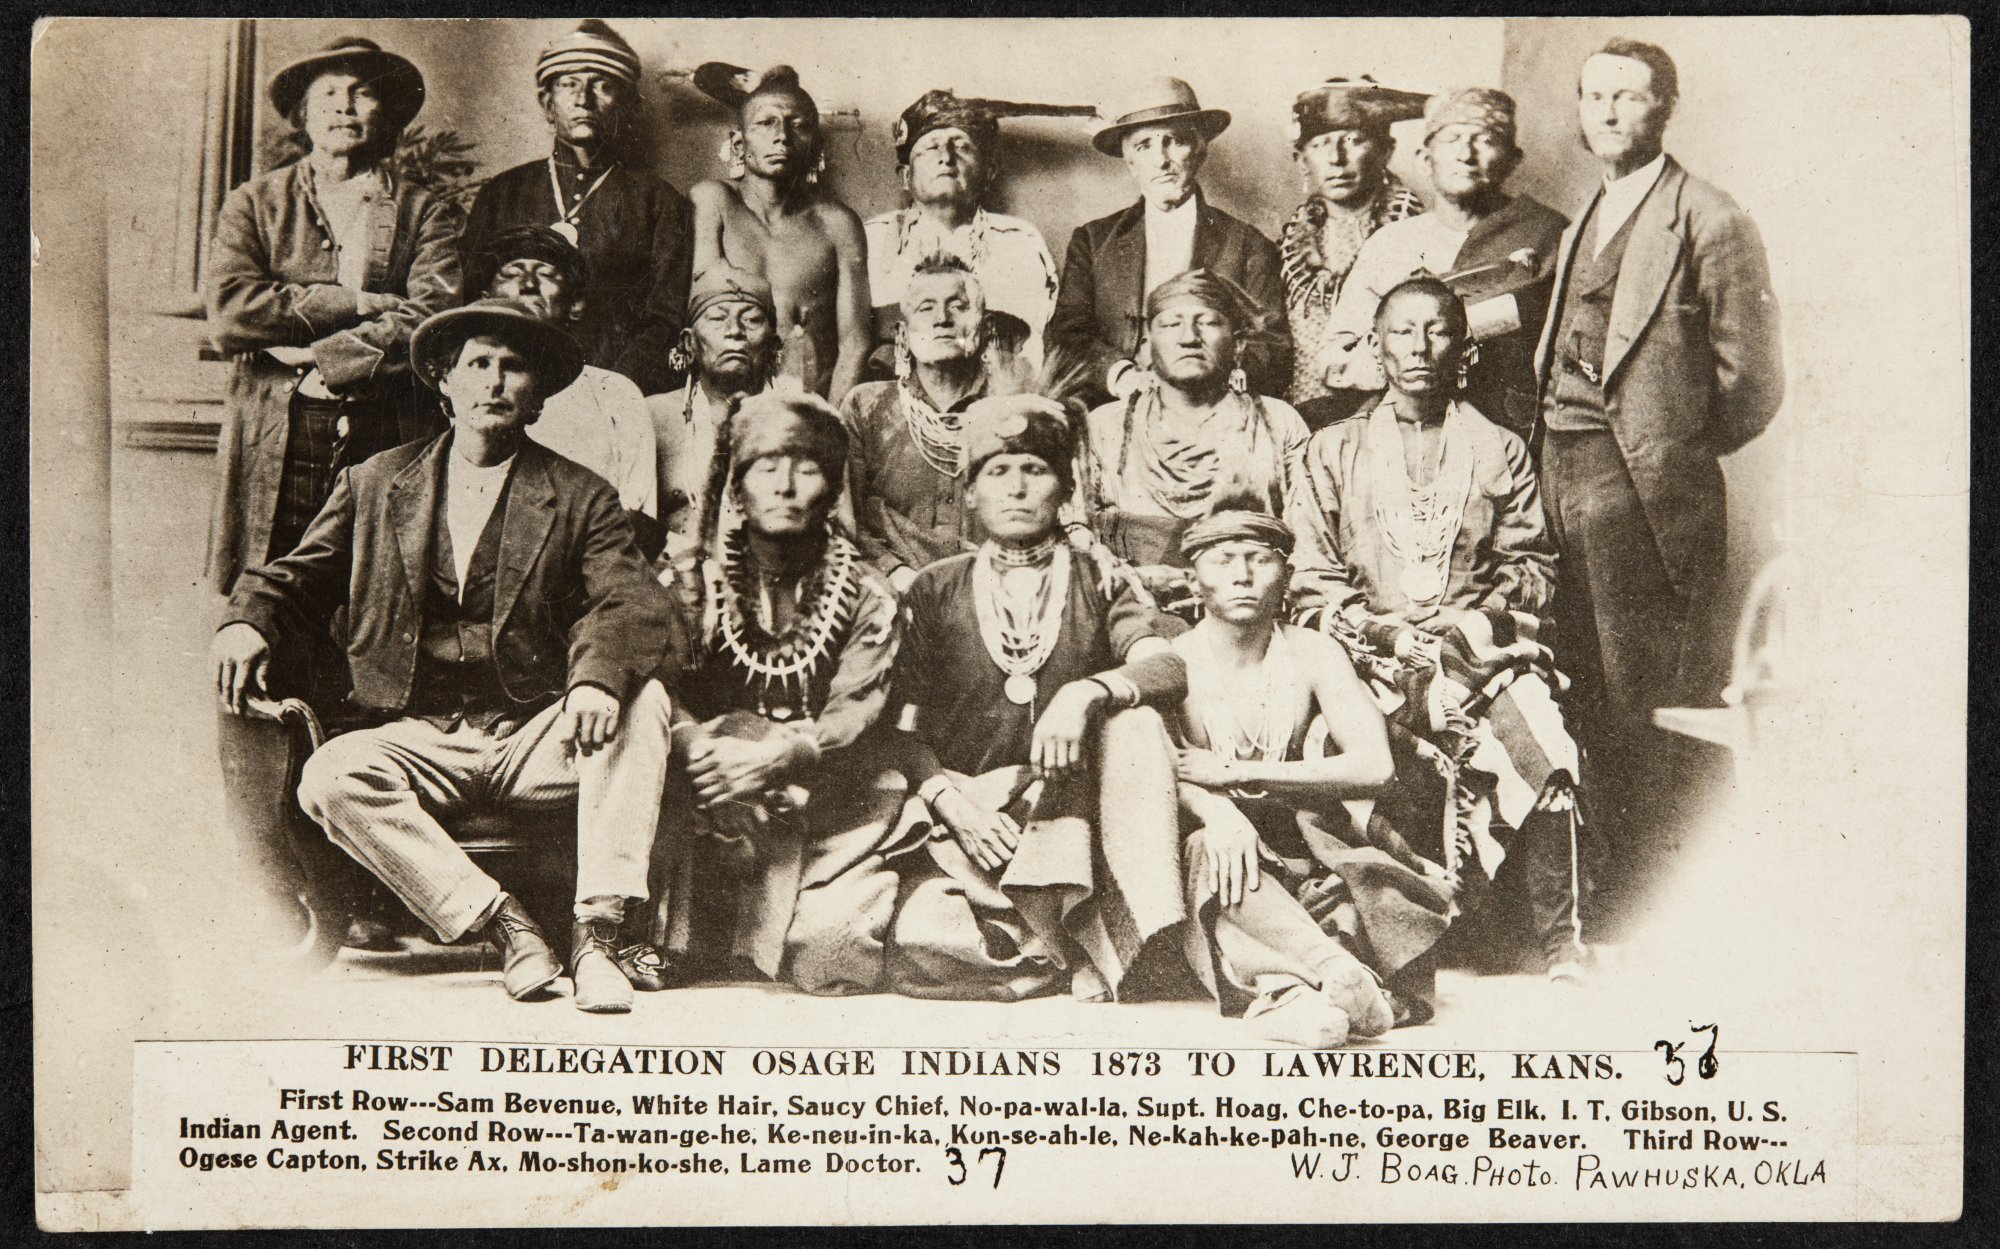 FIRST DELEGATION OSAGE INDIANS 1873 TO LAWRENCE, KANS. 37
First Row---Sam Bevenue, White Hair, Saucy Chief, No-pa-wal-la, Supt. Hoag, Che-to-pa, Big Elk, I. T. Gibson, U. S.
Indian Agent. Second Row---Ta-wan-ge-he, Ke-neu-in-ka, Kon-se-ah-le, Ne-kah-ke-pah-ne, George Beaver. Third Row---
Ogese Capton, Strike Ax, Mo-shon-ko-she, Lame Doctor. 37
W. J. BOAG. PHOTO. PAWHUSKA, OKLA